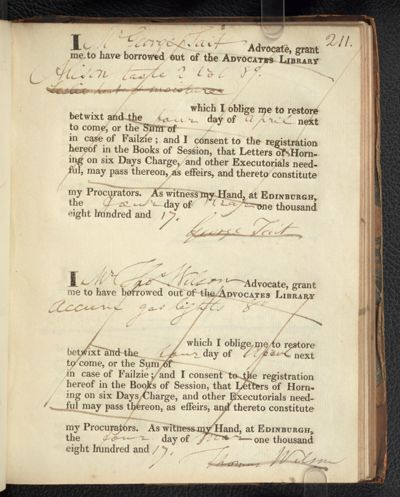 211.
I Mr George Tait Advocate, grant
me to have borrowed out of the ADVOCATES LIBRARY
8o.
which I oblige me to restore
betwixt and the four day of April next
to come, or the Sum of
in case of Failzie; and I consent to the registration
hereof in the Books of Session, that Letters of Horn-
ing on six Days Charge, and other Executorials need-
ful, may pass thereon, as effeirs, and thereto constitute
my Procurators. As witness my Hand, at EDINBURGH,
the four day of one thousand
eight hundred and 17.
George Tait
I Mr Thos Wilson Advocate, grant
me to have borrowed out of the ADVOCATES LIBRARY
Accum gas lights 8o
which I oblige me to restore
betwixt and the four day of April next
to come, or the Sum of
in case of Failzie; and I consent to the registration
hereof in the Books of Session, that Letters of Horn-
ing on six Days Charge, and other Executorials need-
ful may pass thereon, as effeirs, and thereto constitute
my Procurators. As witness my Hand, at EDINBURGH,
the four day of one thousand
eight hundred and 17.
Thomas Wilson